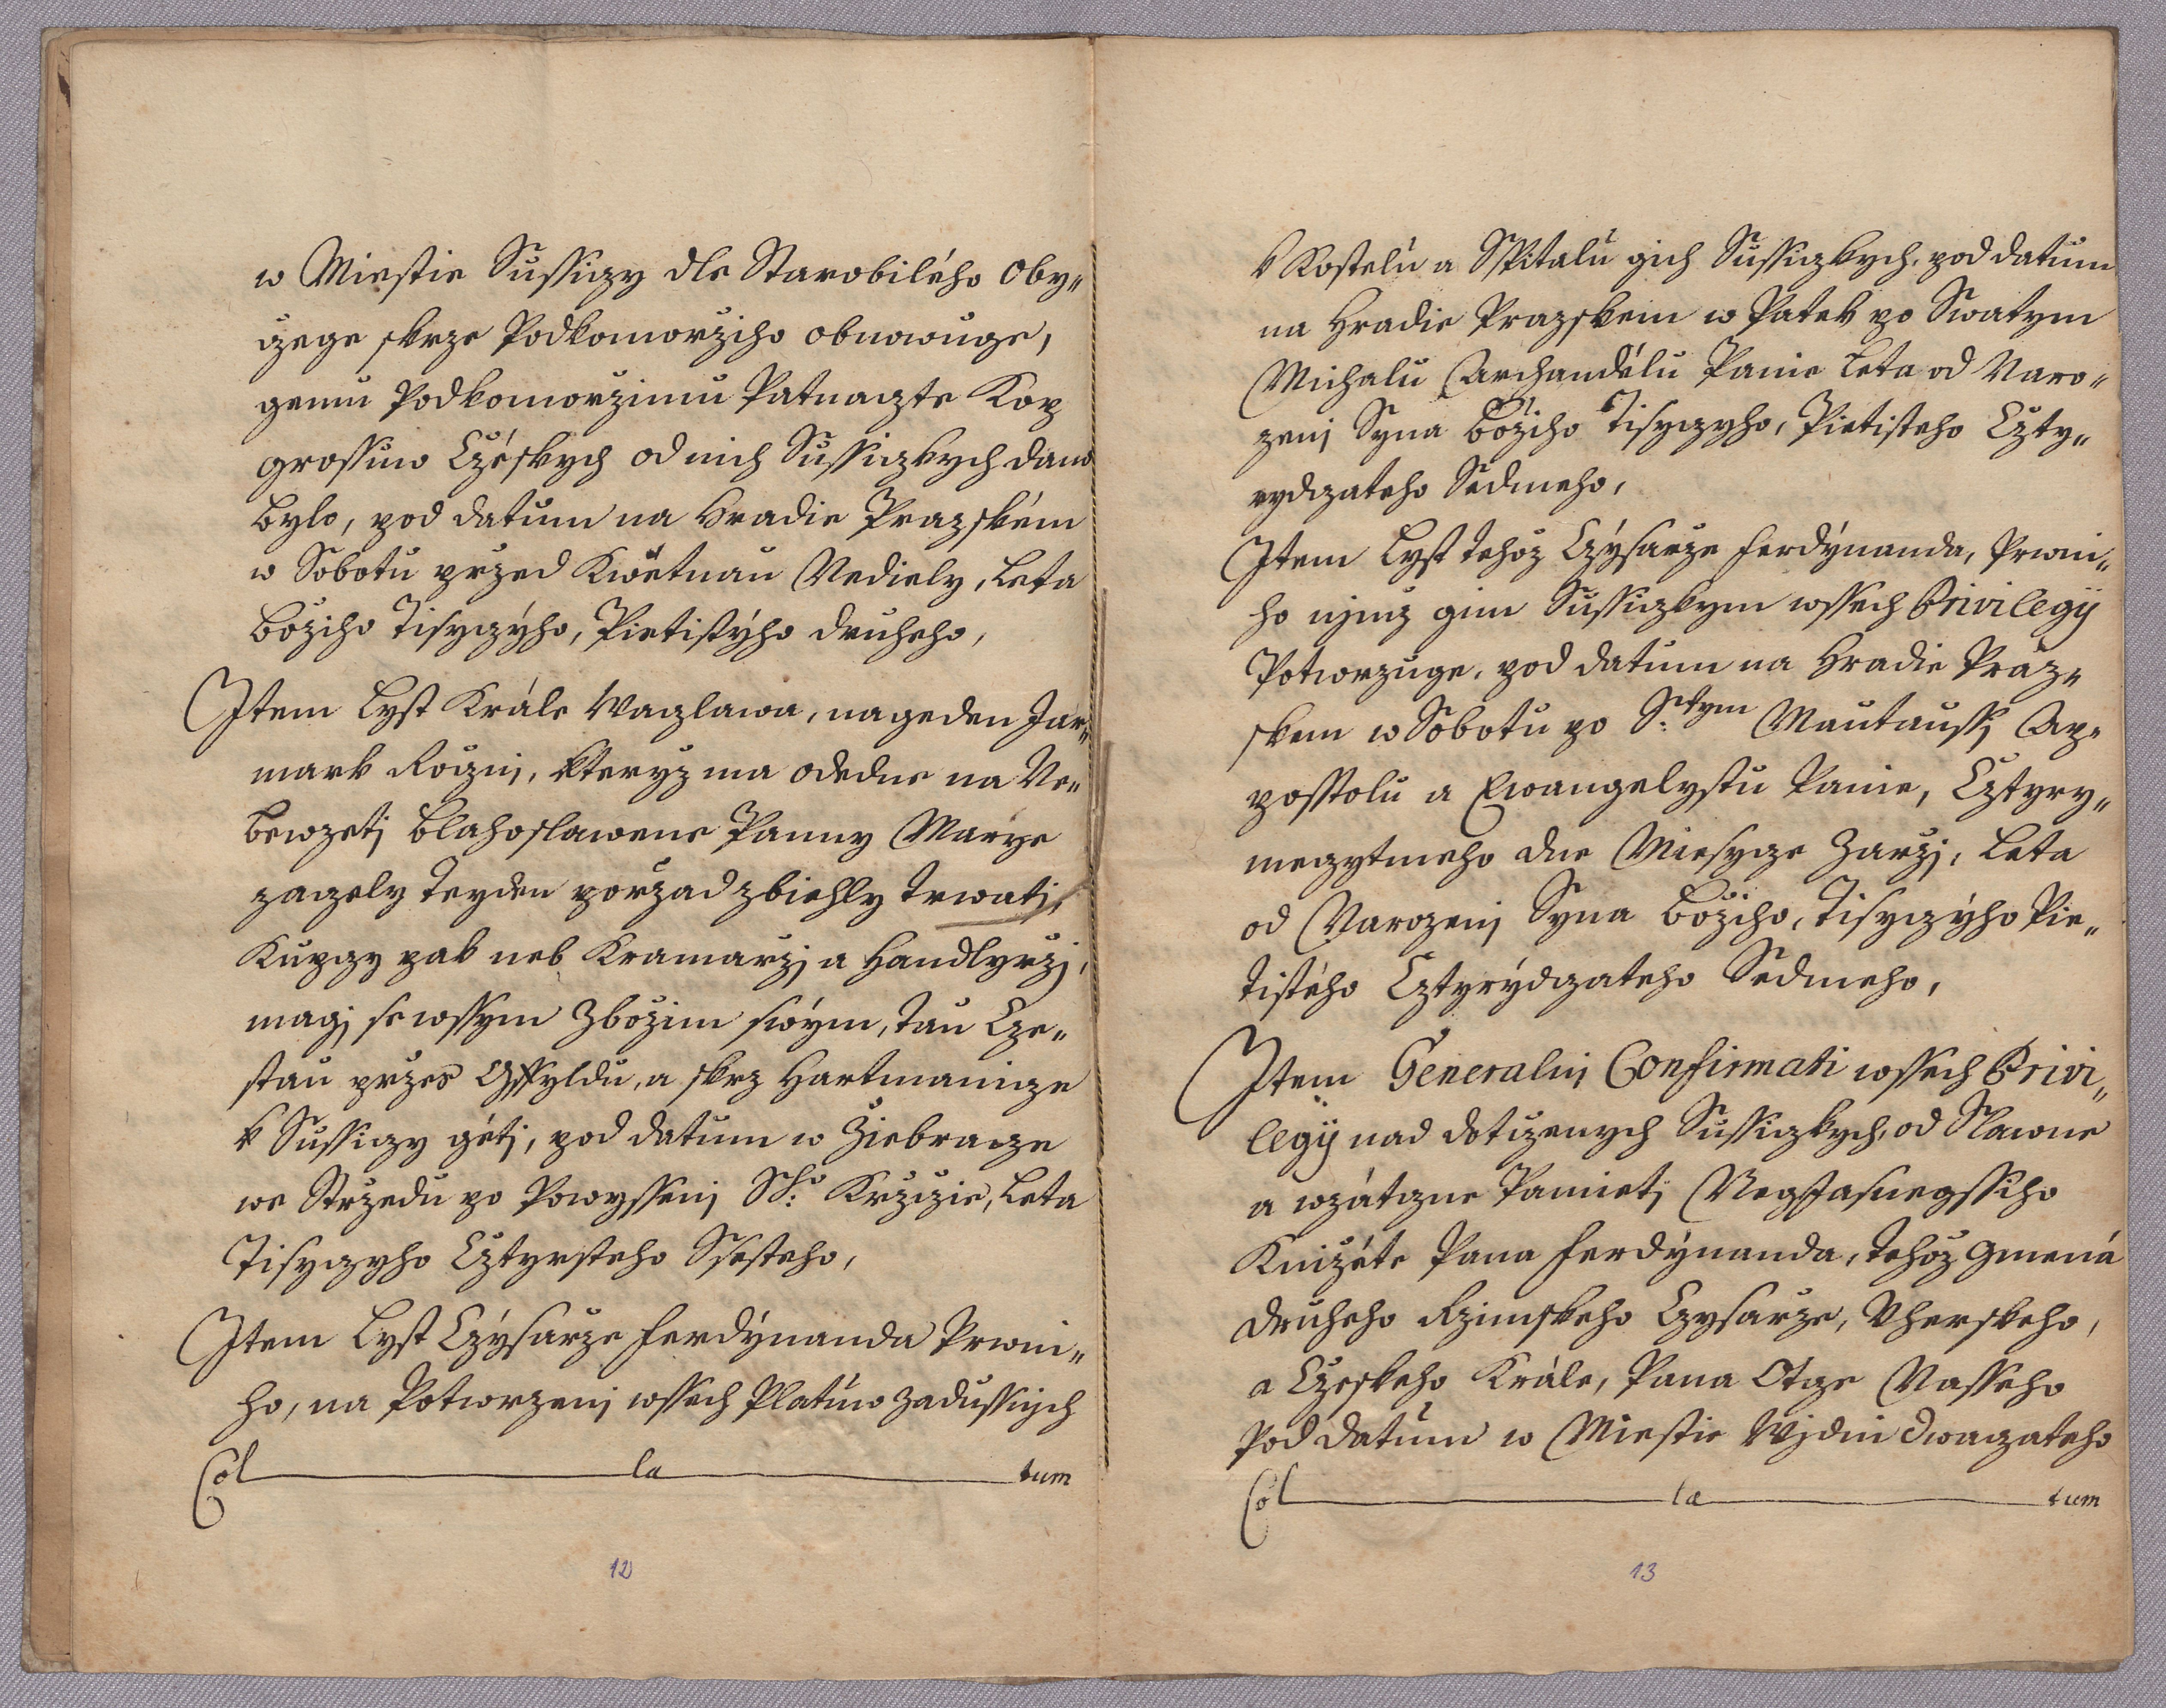 w Miestie Sussiczy dle Starobilého oby„
czege skrze Podkomorziho obnowuge,
gemu Podkomorzimu Patnaczte Kop
grossuw Czéskych od nich Sussiczkych dano
bylo, pod datum na Hradie Prazském
w Sobotu przed Kwětnau Nediely, Leta
Bożiho Tisyczýho, Pietistýho druheho,
Item Lyst Krále Waczlawa, na geden Jar„
mark Rocznj, kteryz ma ode dne na Ne„
bewzetj Blahoslawene Panny Marye
zaczely teyden porzad zbiehly trwatj,
Kupczy pak neb Kramarzj a Handlyrzj,
magj se wssym Zbożim swým, tau Cze„
stau przes Gffyldu, a skrz Hartmanicze
k Sussiczy gétj, pod datum w Żiebracze
we Strzedu po Powyssenj S.ho Krziżie, Leta
Tisyczyho Cztyrsteho Ssesteho,
Item Lyst Czýsarze Ferdýnanda Prwni„
ho, na Potwrzenj wssech Platuw Zadussnjch
Col la tum
12
k Kostelu a Sspitalu gich Sussiczkych, pod datum
na Hradie Prazskem w Patek po Swatym
Michalu Archandélu Panie Leta od Naro„
zenj Syna Bożiho Tisyczyho, Pietisteho Czty„
rydczateho Sedmeho,
Item Lyst tehoż Czýsarze Ferdýnanda, Prwni„
ho njmż gim Sussiczkym wssech Privilegij
Potwrzuge, pod datum na Hradie Praz„
skem w Sobotu po S.tym Mautaussj Ap„
posstolu a Ewangelystu Panie, Cztyry„
meczytmeho dne Miesycze Zarzj, Leta
od Narozenj Syna Bożiho, Tisyczýho Pie„
tistého Cztyrýdczateho Sedmeho,
Item Generalnj Confirmati wssech Privi„
legij nad dotczenych Sussiczkych, od Slawne
a wzátczne Pamietj Neg Jasnegssiho
Kniżéte Pana Ferdýnanda, tehoż Gmená
druheho Rzimskeho Czysarze, Vherskeho,
a Czeskeho Krále, Pana Otcze Nasseho
Pod datum w Miestie Wjdni dwaczateho
Col la tum
13